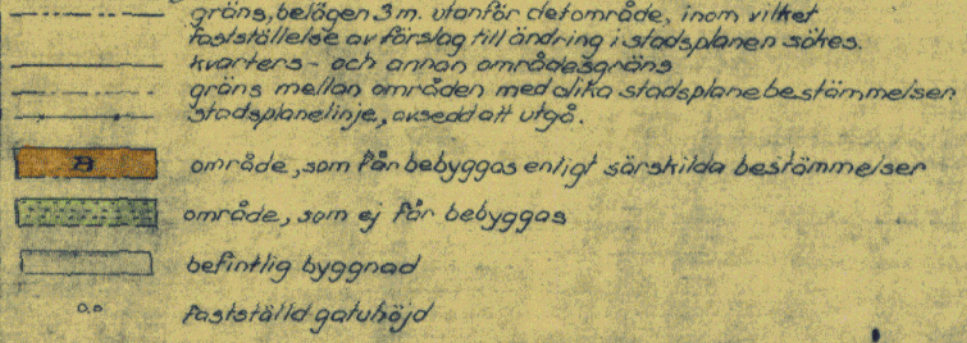 gräns, belägen 3 m. utanför det område, inom vilket
fastställelse av förslag till ändring i stadsplanen sökes.
kvarters- och annan områdesgräns
gräns mellan områden med olika stadsplanebestämmelser
stadsplanelinje, avsedd att utgå.
B område, som får bebyggas enligt särskilda bestämmelser
område, som ej får bebyggas
befintlig byggnad
0.0 fastställd gatuhöjd